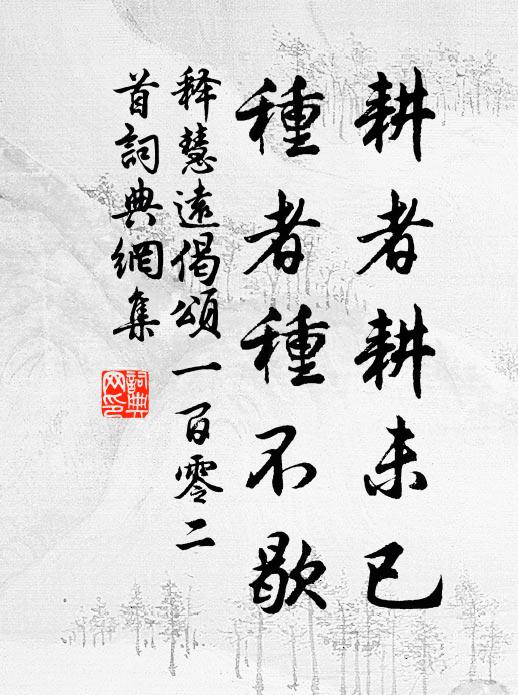 耕者耕未已
種者種不歇
释慧遠偈頌一百零二
首詞典網集
詞典
网印